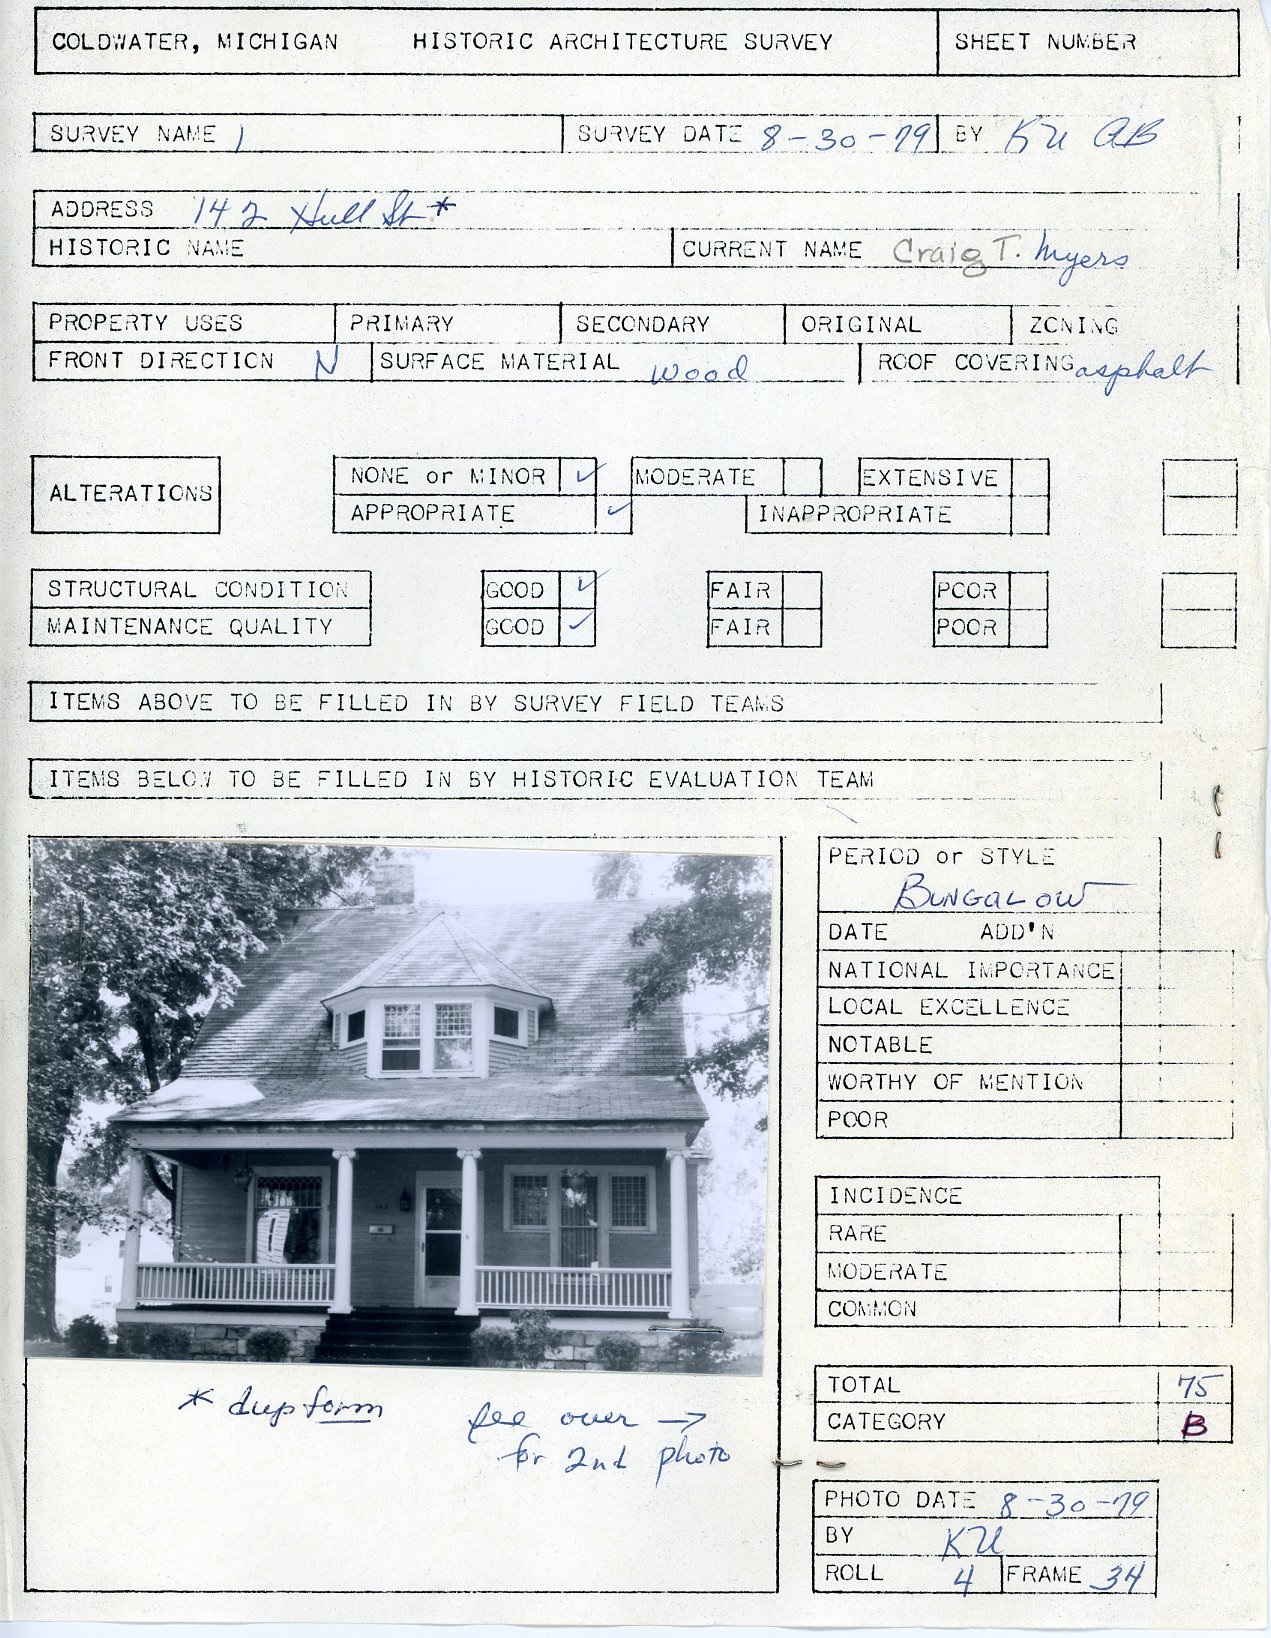 COLDWATER, MICHIGAN HISTORIC ARCHITECTURE SURVEY SHEET NUMBER
SURVEY NAME 1 SURVEY DATE 8-30-79 BY KU AB
ADDRESS 142 Hull St *
HISTORIC NAME CURRENT NAME Craig T. Myers
PROPERTY USES PRIMARY SECONDARY ORIGINAL ZONING
FRONT DIRECTION N SURFACE MATERIAL wood ROOF COVERING asphalt
ALTERATIONS NONE or MINOR ✓ MODERATE EXTENSIVE
APPROPRIATE ✓ INAPPROPRIATE
STRUCTURAL CONDITION GOOD ✓ FAIR POOR
MAINTENANCE QUALITY GOOD ✓ FAIR POOR
ITEMS ABOVE TO BE FILLED IN BY SURVEY FIELD TEAMS
ITEMS BELOW TO BE FILLED IN BY HISTORIC EVALUATION TEAM
PERIOD or STYLE
BUNGALOW
DATE ADD'N
NATIONAL IMPORTANCE
LOCAL EXCELLENCE
NOTABLE
WORTHY OF MENTION
POOR
INCIDENCE
RARE
MODERATE
COMMON
TOTAL 75
CATEGORY B
142
* dup form
see over →
for 2nd photo
PHOTO DATE 8-30-79
BY KU
ROLL 4 FRAME 34